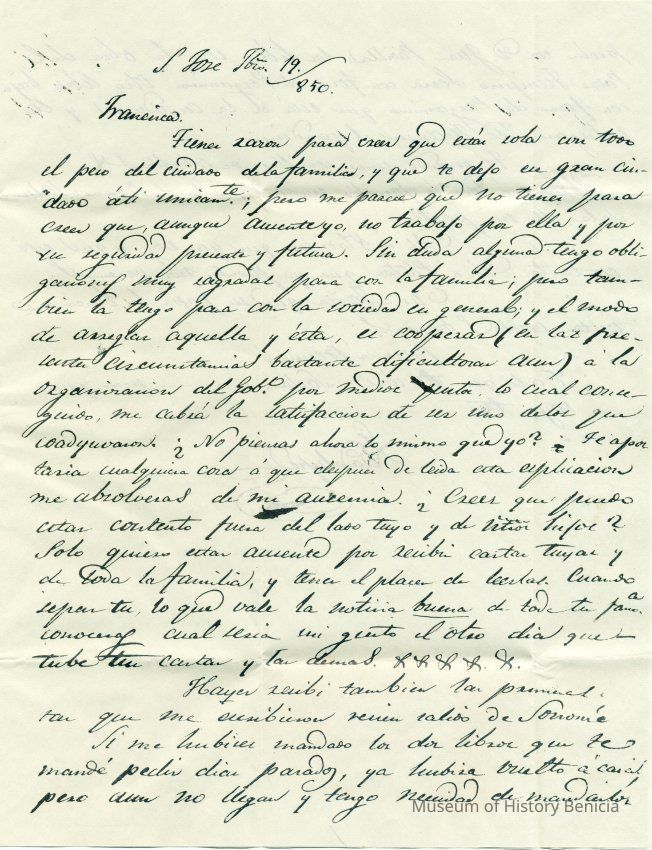 S. Jose 19
/850.
Francisca.
Tienes razon para creer que estás sola con todo
el peso del cuidado de la familia, y que te dejo en gran cui-
dado á ti unicamte.; pero me parece que no tienes para
creer que, aunque ausente yo, no trabajo por ella y por
su seguridad presente y futura. Sin duda alguna tengo obli-
gaciones muy sagradas para con la familia; pero tam-
bien la tengo para con la sociedad en general; y el modo
de arreglar aquella y ésta, es cooperar (en las pre-
sentes circunstancias bastante dificultosas aun) á la
organizasion del Gobo. por medios justos, lo cual conse-
guido, me cabrá la satisfaccion de ser uno de los que
coadyuvaron. ¿No piensas ahora lo mismo que yo? ¿Te apos-
taria cualquiera cosa a que despues de leida esta esplicacion
me absolveras de mi ausensia. ¿Crees que puedo
estar contento fuera del lado tuyo y de hijos?
Solo quiero estar ausente por recibir cartas tuyas y
de toda la familia, y tener el placer de leerlas. Cuando
sepas tu, lo que vale la noticia buena de toda tu fama.
conoceras cual seria mi gusto el otro dia que
tube tus cartas y las demas.
Hayer recibi tambien las primeras
tas que me escribieron recien salido de Sonoma
Si me hubieses mandado los dos libros que te
mandé pedir dias pasados, ya hubiera vuelto á casa
pero aun no llegan y tengo necesidad de mandarlos
Museum of History Benicia